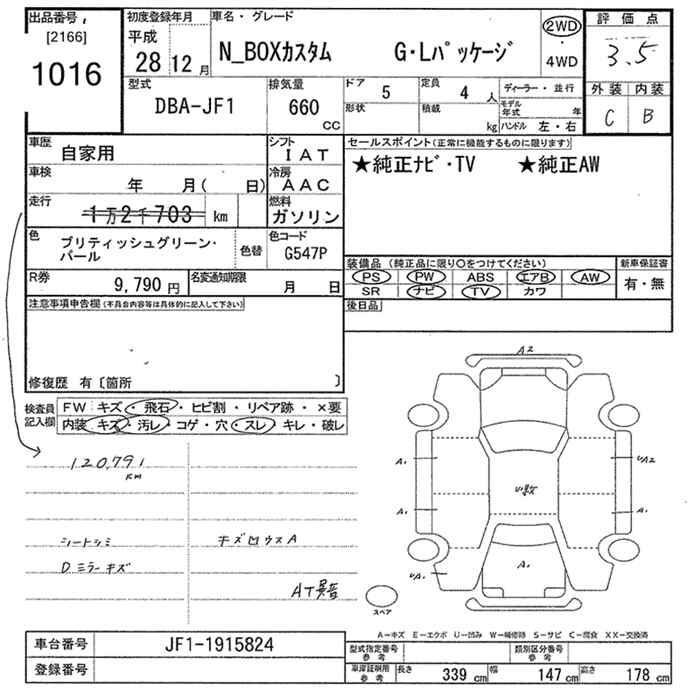 出品番号 初度登録年月 車名・グレード 評価点
[2166] 平成
1016 28年 12月 N_BOXカスタム G・Lパッケージ 2WD・4WD 3.5
型式 排気量 ドア 定員 ディーラー・並行 外装 内装
DBA-JF1 660 CC 5 4 人 モデル年式 年 C B
形状 積載 kg ハンドル 左・右
車歴 自家用 シフト IAT セールスポイント(正常に機能するものに限ります)
車検 年 月( 日) 冷房 AAC ★純正ナビ・TV ★純正AW
走行 1万2千703 km 燃料 ガソリン
色 ブリティッシュグリーン・パール 色替 色コード G547P
装備品(純正品に限り○をつけてください) 新車保証書
R券 9,790円 名変通知期限 月 日 PS PW ABS エアB AW 有・無
SR ナビ TV カワ
注意事項申告欄(不具合内容等は具体的に記入して下さい) 後日品
修復歴 有〔箇所 〕
検査員記入欄 FW:キズ・飛石・ヒビ割・リペア跡・×要
内装 キズ・汚レ・コゲ・穴・スレ・キレ・破レ
A2
120,791 KM
A1 UA2
A1 A1
シートシミ キズ凹ウスA
Dミラーキズ
UA1 A1
AT異音
スペア
A-キズ E-エクボ U-凹み W-補修跡 S-サビ C-腐食 XX-交換済
車台番号 JF1-1915824 型式指定番号 参考 類別区分番号 参考
登録番号 車庫証明用 参考 長さ 339 cm 幅 147 cm 高さ 178 cm